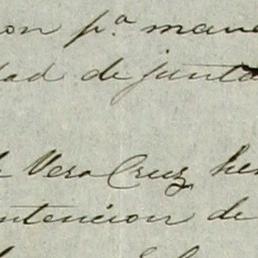 on p.ª man
dad de junta
Vera Cruz he
intencion de